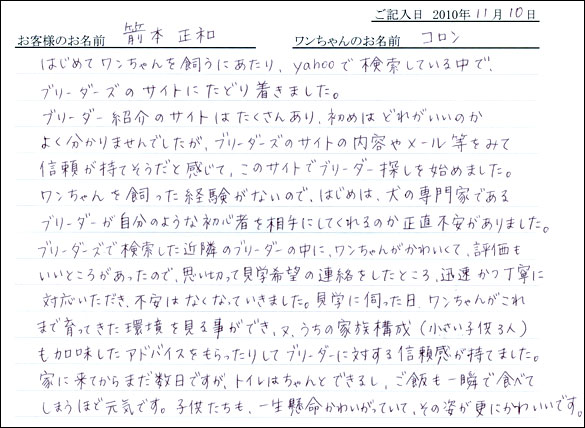 ご記入日 2010年11月10日
お客様のお名前 箭本 正和 ワンちゃんのお名前 コロン
はじめてワンちゃんを飼うにあたり、yahooで検索している中で、
ブリーダーズのサイトにたどり着きました。
ブリーダー紹介のサイトはたくさんあり、初めはどれがいいのか
よく分かりませんでしたが、ブリーダーズのサイトの内容やメール等をみて
信頼が持てそうだと感じて、このサイトでブリーダー探しを始めました。
ワンちゃんを飼った経験がないので、はじめは、犬の専門家である
ブリーダーが自分のような初心者を相手にしてくれるのか正直不安がありました。
ブリーダーズで検索した近隣のブリーダーの中に、ワンちゃんがかわいくて、評価も
いいところがあったので、思い切って見学希望の連絡をしたところ、迅速かつ丁寧に
対応いただき、不安はなくなっていきました。見学に伺った日、ワンちゃんがこれ
まで育ってきた環境を見る事ができ、又、うちの家族構成（小さい子供3人）
も加味したアドバイスをもらったりしてブリーダーに対する信頼感が持てました。
家に来てからまだ数日ですが、トイレはちゃんとできるし、ご飯も一瞬で食べて
しまうほど元気です。子供たちも、一生懸命かわいがっていて、その姿が更にかわいいです。